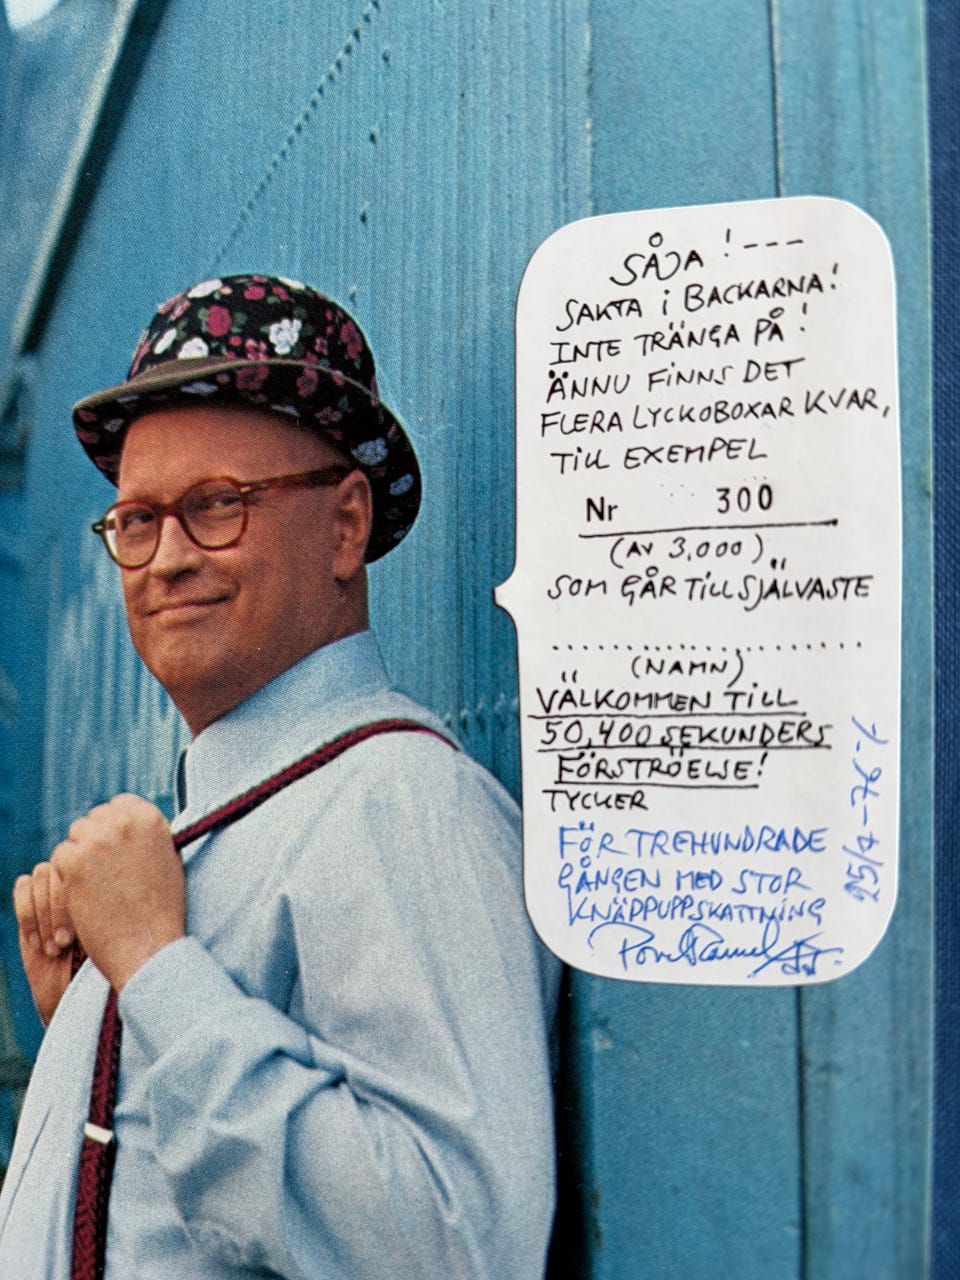 SÅJA!---
SAKTA i BACKARNA!
INTE TRÄNGA PÅ!
ÄNNU FiNNS DET
FLERA LYCKOBOXAR KVAR,
TiLL EXEMPEL
Nr 300
(AV 3,000)
SOM GÅR TiLL SJÄLVASTE
....................
(NAMN)
VÄLKOMMEN TiLL
50,400 SEKUNDERS
FÖRSTRÖELSE!
TYCKER
FÖR TREHUNDRADE
GÅNGEN MED STOR
KNÄPPUPPSKATTNiNG
Povel Ramel
25/4-76